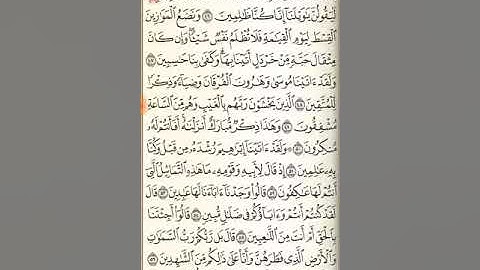 لَيَقُولُنَّ يَٰوَيْلَنَآ إِنَّا كُنَّا ظَٰلِمِينَ ٤٦ وَنَضَعُ ٱلْمَوَٰزِينَ
ٱلْقِسْطَ لِيَوْمِ ٱلْقِيَٰمَةِ فَلَا تُظْلَمُ نَفْسٌ شَيْـًٔا وَإِن كَانَ
مِثْقَالَ حَبَّةٍ مِّنْ خَرْدَلٍ أَتَيْنَا بِهَا وَكَفَىٰ بِنَا حَٰسِبِينَ ٤٧
وَلَقَدْ ءَاتَيْنَا مُوسَىٰ وَهَٰرُونَ ٱلْفُرْقَانَ وَضِيَآءً وَذِكْرًا
لِّلْمُتَّقِينَ ٤٨ ٱلَّذِينَ يَخْشَوْنَ رَبَّهُم بِٱلْغَيْبِ وَهُم مِّنَ ٱلسَّاعَةِ
مُشْفِقُونَ ٤٩ وَهَٰذَا ذِكْرٌ مُّبَارَكٌ أَنزَلْنَٰهُ أَفَأَنتُمْ لَهُۥ
مُنكِرُونَ ٥٠ وَلَقَدْ ءَاتَيْنَآ إِبْرَٰهِيمَ رُشْدَهُۥ مِن قَبْلُ وَكُنَّا
بِهِۦ عَٰلِمِينَ ٥١ إِذْ قَالَ لِأَبِيهِ وَقَوْمِهِۦ مَا هَٰذِهِ ٱلتَّمَاثِيلُ ٱلَّتِىٓ
أَنتُمْ لَهَا عَٰكِفُونَ ٥٢ قَالُوا۟ وَجَدْنَآ ءَابَآءَنَا لَهَا عَٰبِدِينَ ٥٣ قَالَ
لَقَدْ كُنتُمْ أَنتُمْ وَءَابَآؤُكُمْ فِى ضَلَٰلٍ مُّبِينٍ ٥٤ قَالُوٓا۟ أَجِئْتَنَا
بِٱلْحَقِّ أَمْ أَنتَ مِنَ ٱللَّٰعِبِينَ ٥٥ قَالَ بَل رَّبُّكُمْ رَبُّ ٱلسَّمَٰوَٰتِ
وَٱلْأَرْضِ ٱلَّذِى فَطَرَهُنَّ وَأَنَا۠ عَلَىٰ ذَٰلِكُم مِّنَ ٱلشَّٰهِدِينَ ٥٦